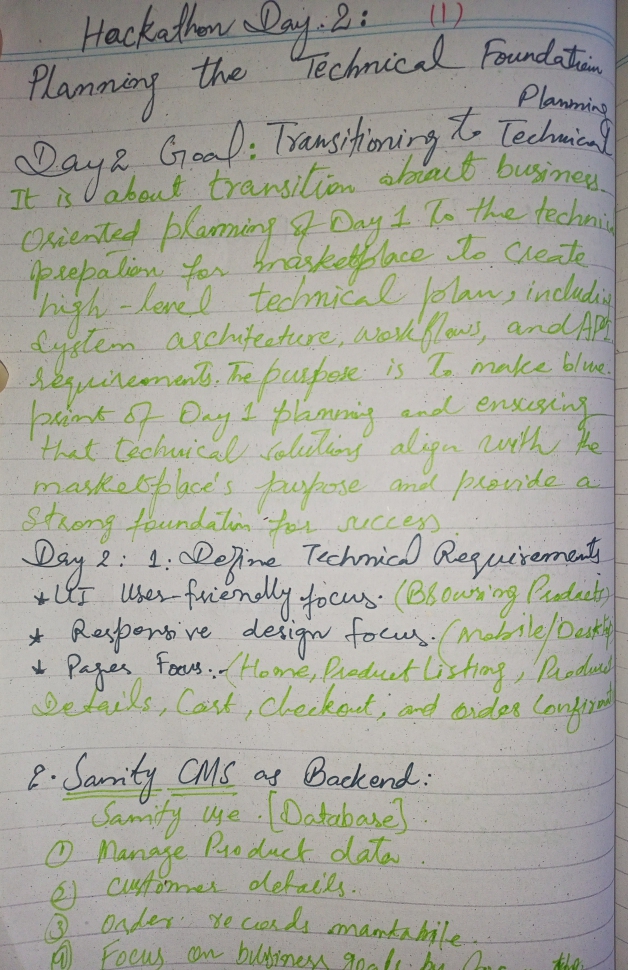 Hackathon Day. 2: (1)
Planning the Technical Foundation
Planning
Day 2 Goal: Transitioning to Technical
It is about transition about business-
Oriented planning of Day 1 To the techni
prepation for marketplace to create
high-level technical plan, includin
system architecture, workflows, and API
requirements. The purpose is To make blue-
print of Day 1 planning and ensuring
that technical solutions align with the
marketplace's purpose and provide a
Strong foundation for success
Day 2: 1: Define Technical Requirements
* UI User-friendly focus. (Browsing Products)
* Responsive design focus. (Mobile/Deskto
* Pages Focus:- (Home, Product Listing, Produc
Details, Cart, Checkout, and order Confirmat
2. Sanity CMS as Backend:
Sanity use [Database]
① Manage Product data
② customer details.
③ order records
④ Focus on business goals by the